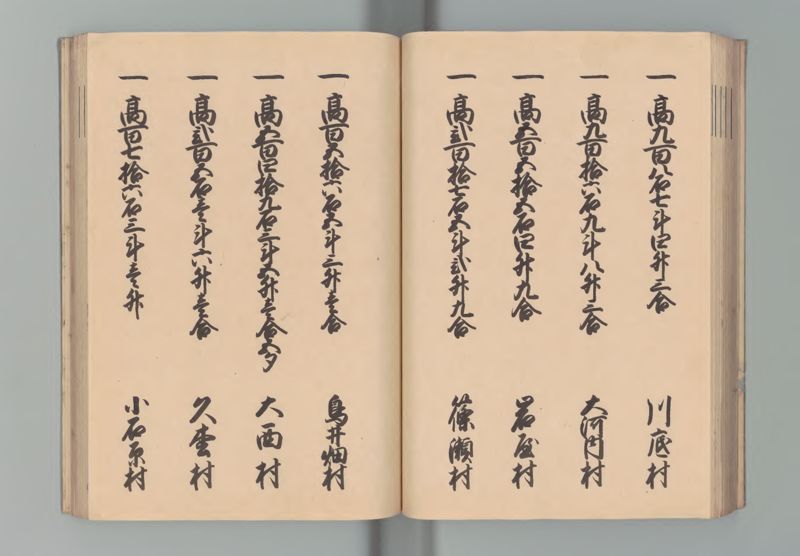 一 高九百八石七斗四升三合 川底村
一 高九百拾六石九斗八升二合 大河内村
一 高五百五拾五石四升九合 岩屋村
一 高弐百拾七石五斗弐升九合 篠瀬村
一 高百五拾六石五斗三升壱合 鳥井畑村
一 高五百四拾九石三斗五升壱合五夕 大西村
一 高弐百五石壱斗六升壱合 久 村
一 高百七拾六石三斗壱升 小石原村